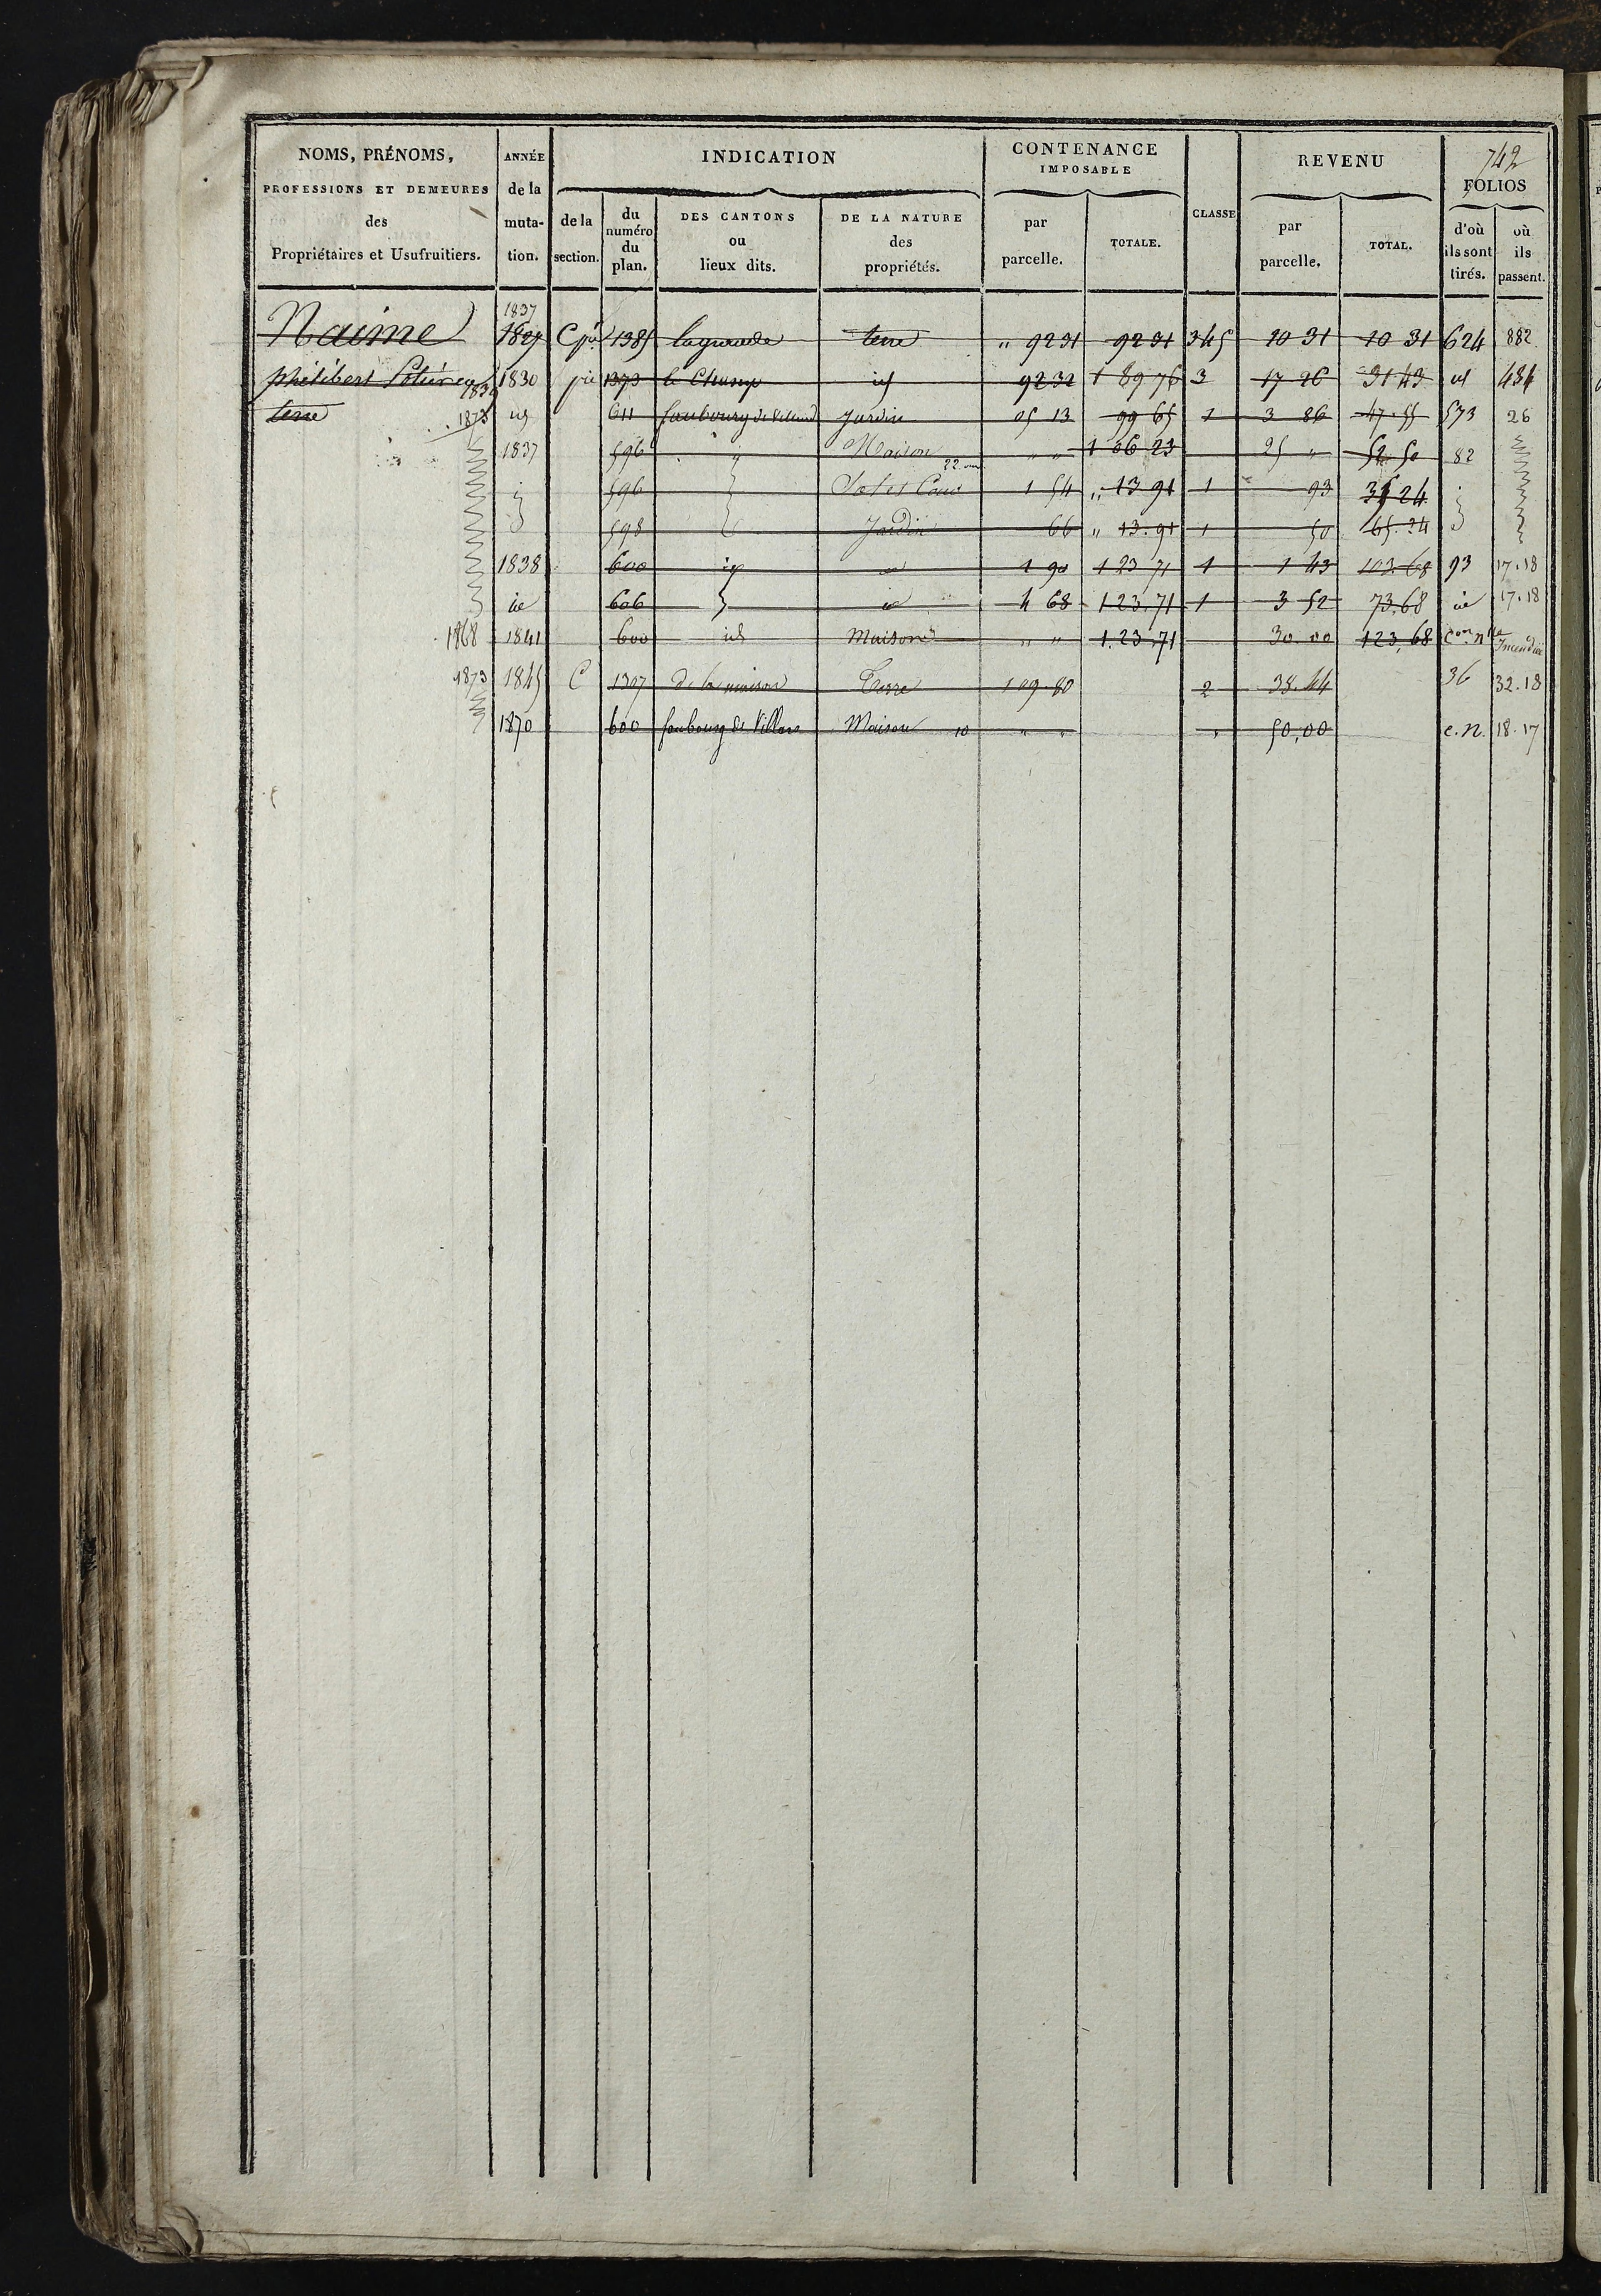 742
NOMS, PRÉNOMS, PROFESSIONS ET DEMEURES des Propriétaires et Usufruitiers.
ANNÉE de la muta-tion.
INDICATION
de la section.
du numéro du plan.
DES CANTONS ou lieux dits.
DE LA NATURE des propriétés.
CONTENANCE IMPOSABLE
par parcelle.
TOTALE.
CLASSE
REVENU
par parcelle.
TOTAL.
FOLIOS
d'où ils sont tirés.
où ils passent.
1837
Naime 1827 C pie 1385 terre " 92 31 92 31 345 10 31 10 31 624 882
philibert 1830 pie 1373 le Champ id 92 32 1 89 76 3 17 26 31 43 id 484
1839
1873 id 611 faubourg de Jardin 05 13 99 65 1 3 86 47.55 573 26
1837 596 Maison " " 1 06 23 25 " 52.50 82
22
596 Sol et Cour 1 54 " 13 91 1 93 24
598 Jardin 66 " 13.91 1 50 65.34
1838 600 id 1 90 1 23 71 1 1 43 103.68 93 17.18
id 606 id 4 68 1.23.71 1 3 52 73.68 id 17.18
1868 1841 600 id Maison " " 1.23.71 30 00 123,68 Con nlle Incendie
1873 1845 C 1307 de la maison Terre 1 09.80 2 38.44 36 32.18
1870 600 faubourg de Villars Maison 10 " " " 50,00 c.n. 18.17